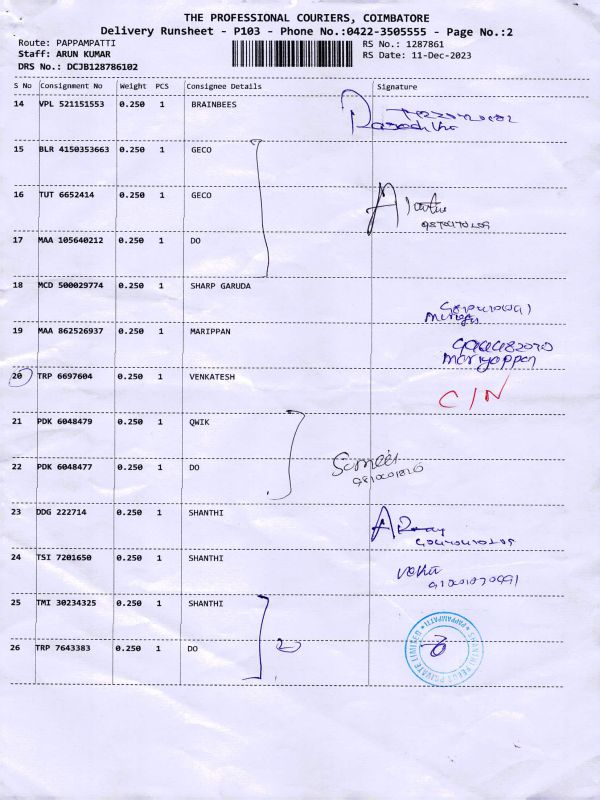 THE PROFESSIONAL COURIERS, COIMBATORE
Delivery Runsheet - P103 - Phone No.:0422-3505555 - Page No.:2
Route: PAPPAMPATTI RS No.: 1287861
Staff: ARUN KUMAR RS Date: 11-Dec-2023
DRS No.: DCJB128786102
S No Consignment No Weight PCS Consignee Details Signature
14 VPL 521151553 0.250 1 BRAINBEES
15 BLR 4150353663 0.250 1 GECO
16 TUT 6652414 0.250 1 GECO
17 MAA 105640212 0.250 1 DO
18 MCD 500029774 0.250 1 SHARP GARUDA
19 MAA 862526937 0.250 1 MARIPPAN
Mariyappan
20 TRP 6697604 0.250 1 VENKATESH C/N
21 PDK 6048479 0.250 1 QWIK
22 PDK 6048477 0.250 1 DO
23 DDG 222714 0.250 1 SHANTHI
24 TSI 7201650 0.250 1 SHANTHI
25 TMI 30234325 0.250 1 SHANTHI
26 TRP 7643383 0.250 1 DO
PRIVATE LIMITED * PAPPAMPATTI *